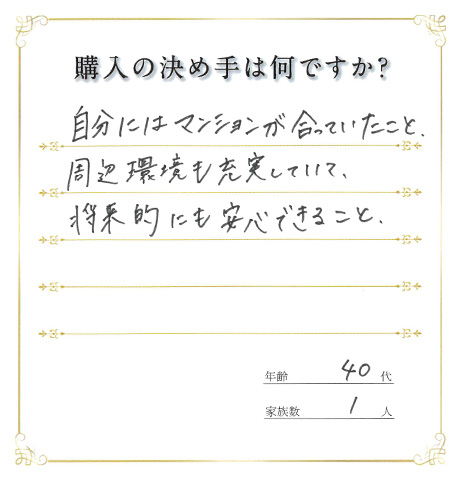 購入の決め手は何ですか?
自分にはマンションが合っていたこと、
周辺環境も充実していて、
将来的にも安心できること、
年齢 40 代
家族数 1 人